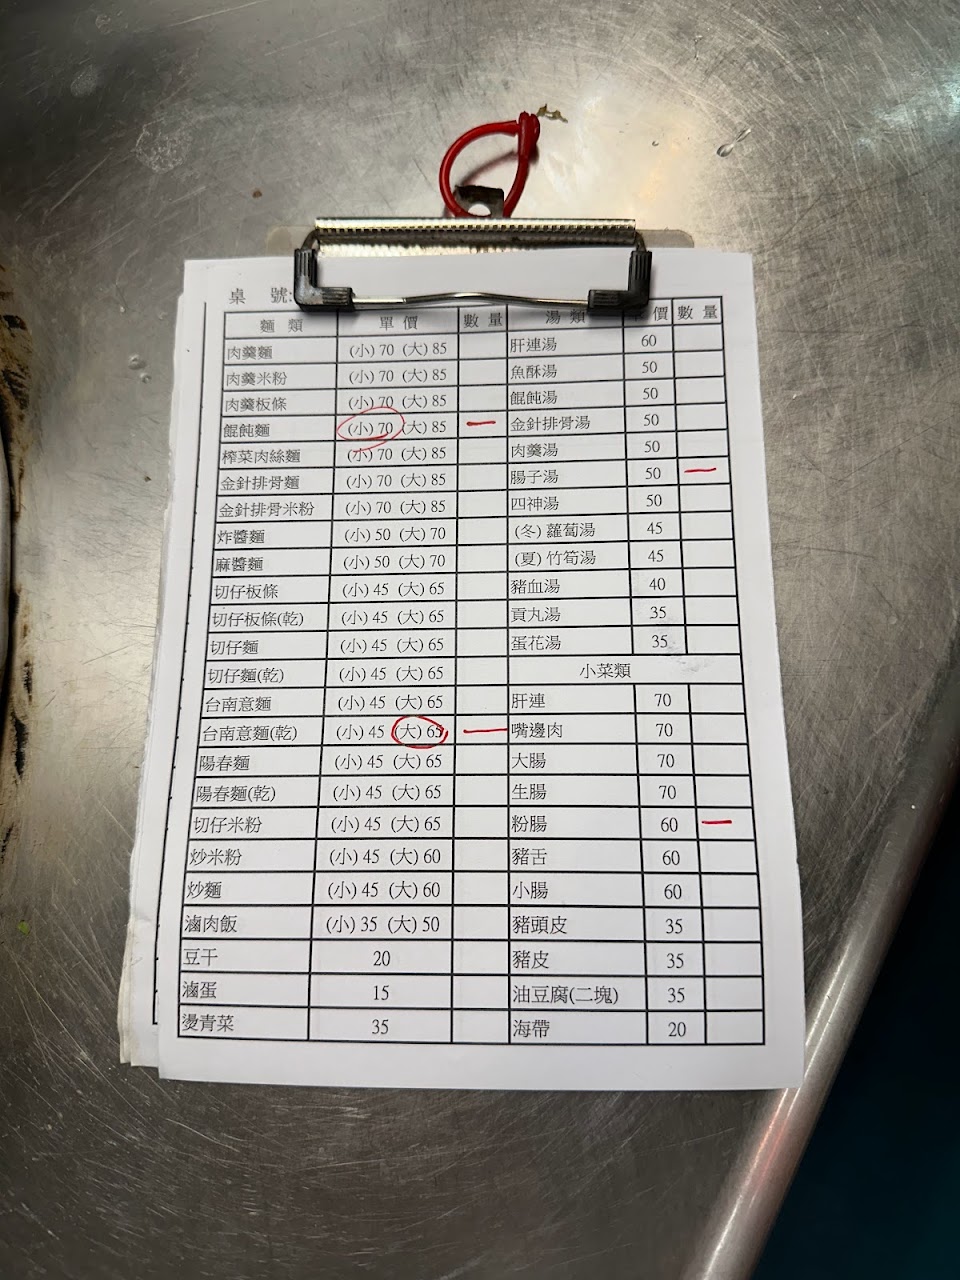 桌 號:
麵 類 單 價 數 量 湯 類 價 數 量
肉羹麵 (小) 70 (大) 85 肝連湯 60
肉羹米粉 (小) 70 (大) 85 魚酥湯 50
肉羹板條 (小) 70 (大) 85 餛飩湯 50
餛飩麵 (小) 70 (大) 85 一 金針排骨湯 50
榨菜肉絲麵 (小) 70 (大) 85 肉羹湯 50
金針排骨麵 (小) 70 (大) 85 腸子湯 50 一
金針排骨米粉 (小) 70 (大) 85 四神湯 50
炸醬麵 (小) 50 (大) 70 (冬) 蘿蔔湯 45
麻醬麵 (小) 50 (大) 70 (夏) 竹筍湯 45
切仔板條 (小) 45 (大) 65 豬血湯 40
切仔板條(乾) (小) 45 (大) 65 貢丸湯 35
切仔麵 (小) 45 (大) 65 蛋花湯 35
切仔麵(乾) (小) 45 (大) 65 小菜類
台南意麵 (小) 45 (大) 65 肝連 70
台南意麵(乾) (小) 45 (大) 65 一 嘴邊肉 70
陽春麵 (小) 45 (大) 65 大腸 70
陽春麵(乾) (小) 45 (大) 65 生腸 70
切仔米粉 (小) 45 (大) 65 粉腸 60 一
炒米粉 (小) 45 (大) 60 豬舌 60
炒麵 (小) 45 (大) 60 小腸 60
滷肉飯 (小) 35 (大) 50 豬頭皮 35
豆干 20 豬皮 35
滷蛋 15 油豆腐(二塊) 35
燙青菜 35 海帶 20